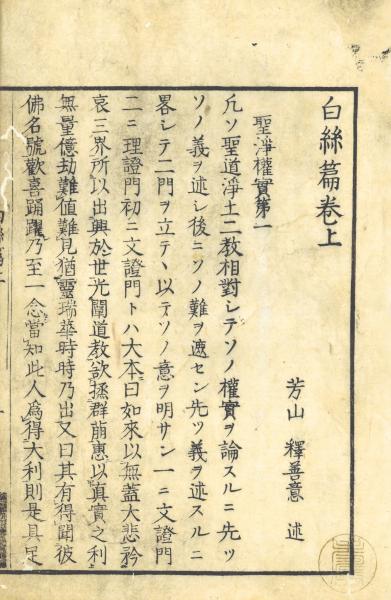 白絲篇卷上
芳山 釋善意 述
聖淨權實第一
凡ソ聖道淨土二教相對シテソノ權實ヲ論スルニ先ツ
ソノ義ヲ述シ後ニソノ難ヲ遮セン先ツ義ヲ述スルニ
畧シテ二門ヲ立テヽ以テソノ意ヲ明サン一ニ文證門
二ニ理證門初ニ文證門トハ大本曰如來以無蓋大悲矜
哀三界所以出興於世光闡道教欲拯群萠惠以眞實之利
無量億劫難値難見猶靈瑞華時時乃出又曰其有得聞彼
佛名號歡喜踊躍乃至一念當知此人爲得大利則是具足